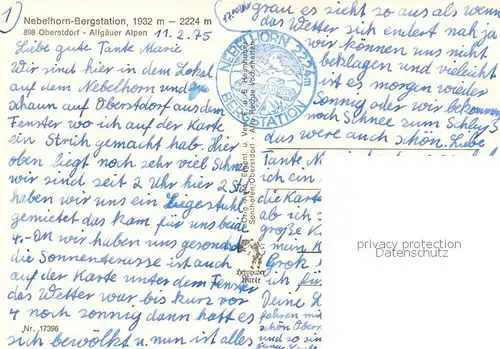 1)
Nebelhorn-Bergstation, 1932 m – 2224 m
898 Oberstdorf – Allgäuer Alpen
11.2.75
Liebe gute Tante Marie
Wir sind hier in dem Lokal
auf dem Nebelhorn und
schaun auf Oberstdorf aus dem
Fenster wo ich auf der Karte
ein Strich gemacht hab. Hier
oben liegt noch sehr viel Schnee
wir sind seit 2 Uhr hier 2 Stu
haben wir uns ein Liegestuhl
gemietet das kam für uns beide
4.-DM wir haben uns gesonnt
die Sonnenterasse ist auch
auf der Karte unter dem Fenster
das Wetter war bis kurz vor
4 noch sonnig dann hat es
sich bewölkt u. nun ist alles
Nr. 17396
NEBELHORN 2224m
BERGSTATION
grau es sieht so aus als wenn
das Wetter sich endert nah ja
wir können uns nicht
beklagen und vieleicht
ist es morgen wieder
sonnig oder wir bekommen
noch Schnee zum Schluß
das were auch schön. Liebe
Tante, M
ich ein
die Karte
ab ich
große K
mein K
Grok
ich für
Deine
fahren mit
schön Ober
und so sin
privacy protection
Datenschutz